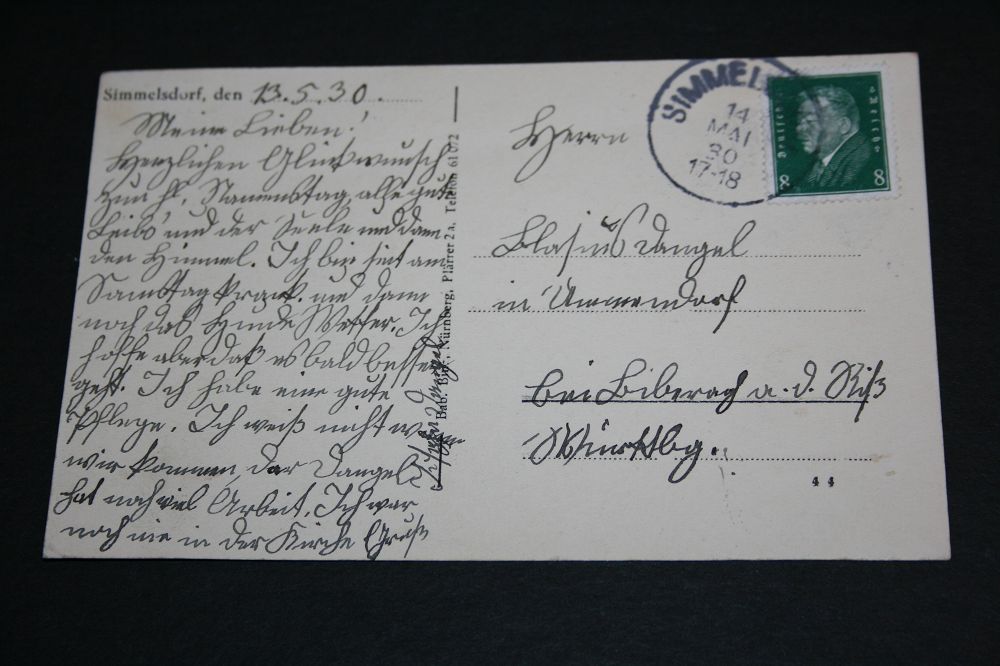 Simmelsdorf, den 13.5.30.
Meine Lieben!
Herzlichen Glückwunsch
zum hl. Namenstag, alles gute
Leib's und der Seele und dann
den Himmel. Ich bin seit am
Samstag krank. und dann
noch das Hunde Wetter. Ich
hoffe aber daß es bald besser
geht. Ich habe eine gute
Pflege. Ich weiß nicht wann
wir kommen, der Dangel
hat noch viel Arbeit. Ich war
noch nie in der Kirche Gruß
Dangel
Nürnberg, Plärrer 2a, Telefon 61072
SIMMELSDORF
14
MAI
30
17-18
Deutsches Reich
8 8
Herrn
Blasius Dangel
in Ummendorf
bei Biberach a. d. Riß
Württbg.
44